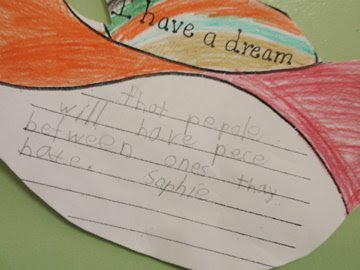 I have a dream
that pepole
will have pece
between ones thay
hate.
Sophie